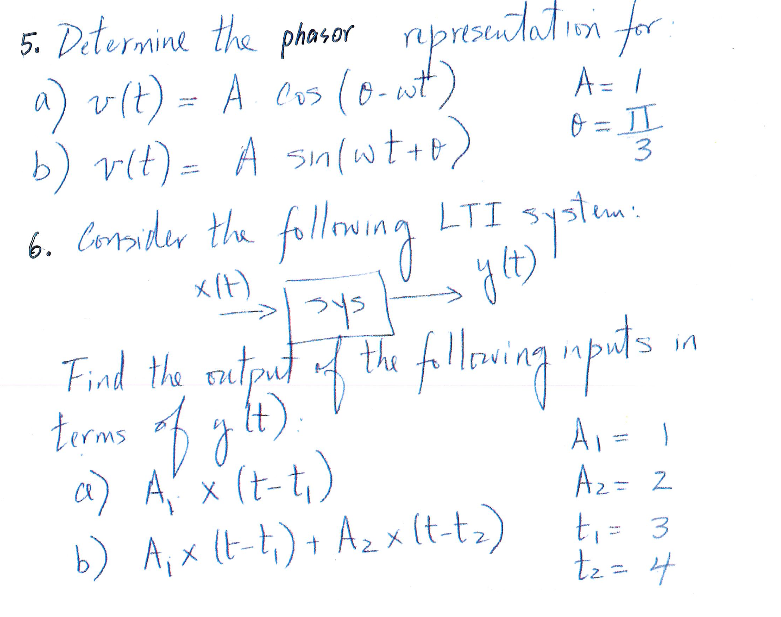 5. Determine the phasor representation for:
a) v(t) = A cos (θ-wt) A = 1
θ = π/3
b) v(t) = A sin(wt+θ)
6. Consider the following LTI system:
x(t) → sys → y(t)
Find the output of the following inputs in
terms of y(t):
a) A₁ x (t-t₁) A₁ = 1
A₂ = 2
b) A₁x (t-t₁) + A₂ x (t-t₂) t₁ = 3
t₂ = 4